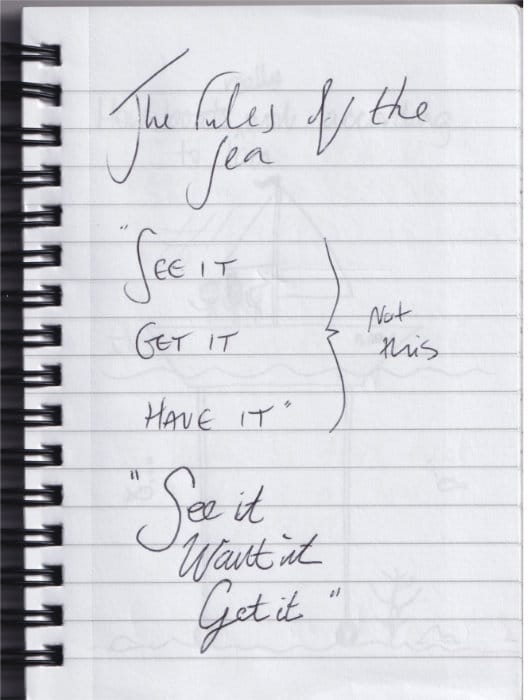 The Rules of the
Sea
"SEE IT
GET IT
HAVE IT"
Not
this
"See it
Want it
Get it"